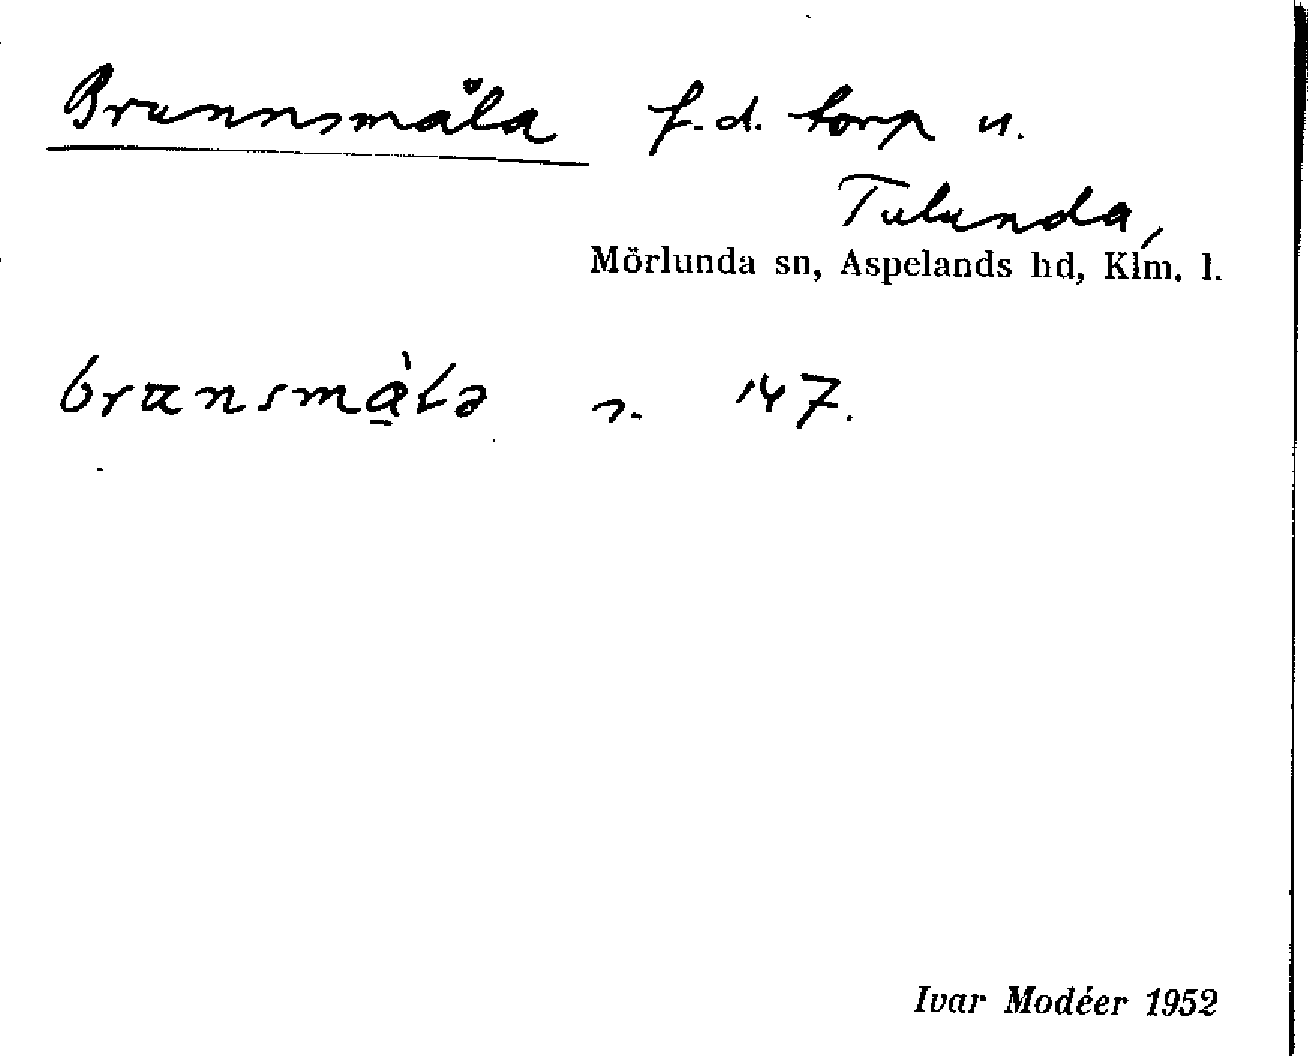 Brunnsmåla f.d. torp u.
Tulunda,
Mörlunda sn, Aspelands hd, Klm. l.
s. 147.
Ivar Modéer 1952